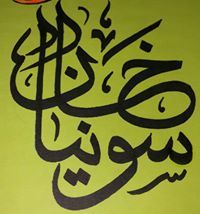 سونیا خان